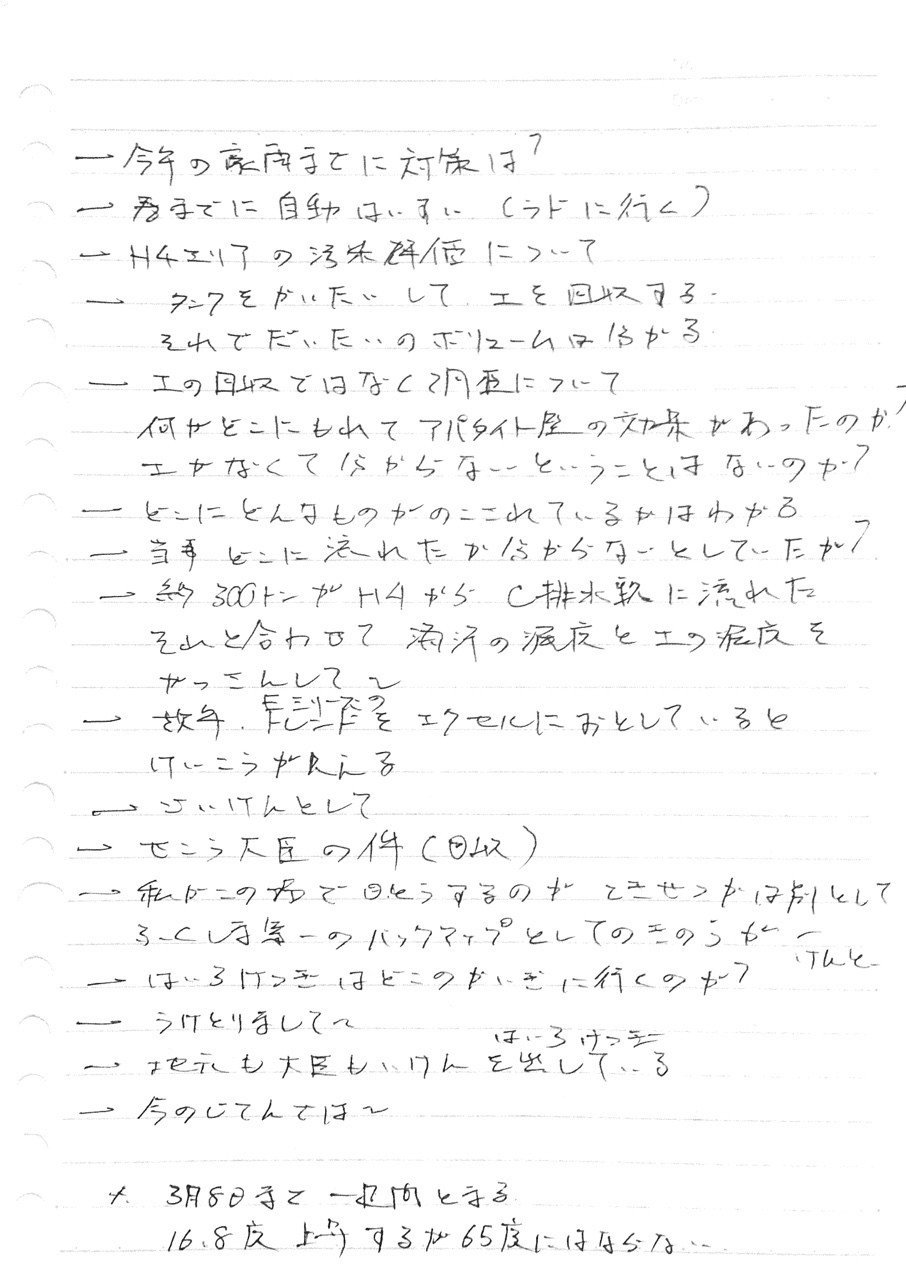 一 今年の豪雨までに対策は?
一 春までに自動はいすい (ラドに行く)
一 H4エリアの汚染評価について
一 タンクをかいたいして 土を回収する.
それでだいたいのボリュームは分かる
一 土の回収ではなく調査について
何がどこにもれてアパタイト層の効果があったのか?
土がなくて分からないということはないのか?
一 どこにどんなものがのこされているかはわかる
一 当事 どこに流れたか分からないとしていたが?
一 約300トンがH4から C排水路に流れた
それと合わせて 海洋の濃度と土の濃度を
やっこんして〜
一 故年. トレンドをエクセルにおとしていると
けいこうが見える
一 さいけんとして
一 せこう大臣の件(回収)
一 私がこの場で 回とうするのが てきせつかは別として
ふくしま第一のバックアップとしてのきのうが ー
けんと
一 はいろけってきはどこのかいぎに行くのか?
一 うけとりまして〜
はいろけってい
一 地元も大臣もいけんを出している
一 今のじてんでは〜
3月8日まで 一週間とまる
16.8度 上昇するが65度にはならない